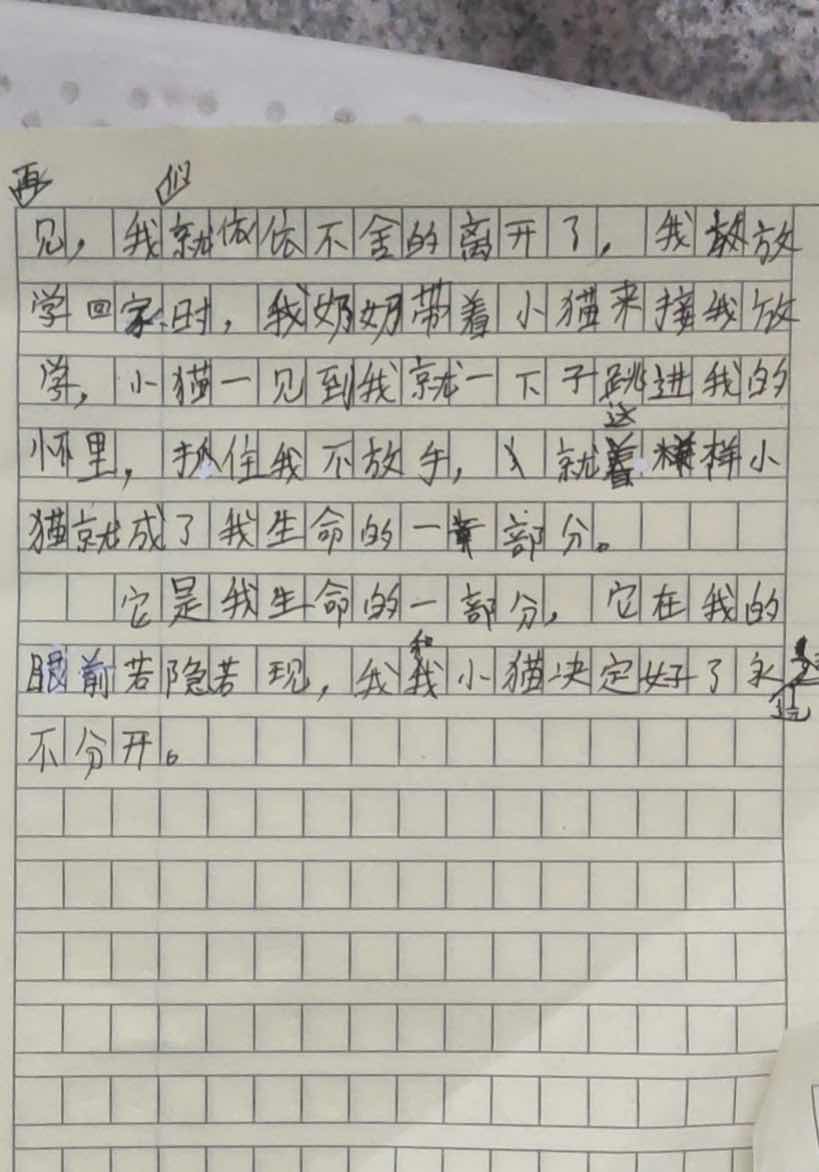 再
见，我就依依不舍的离开了，我放
学回家时，我奶奶带着小猫来接我放
学，小猫一见到我就一下子跳进我的
怀里，抓住我不放手，就这样小
猫就成了我生命的一部分。
它是我生命的一部分，它在我的
眼前若隐若现，我和小猫决定好了永远
不分开。